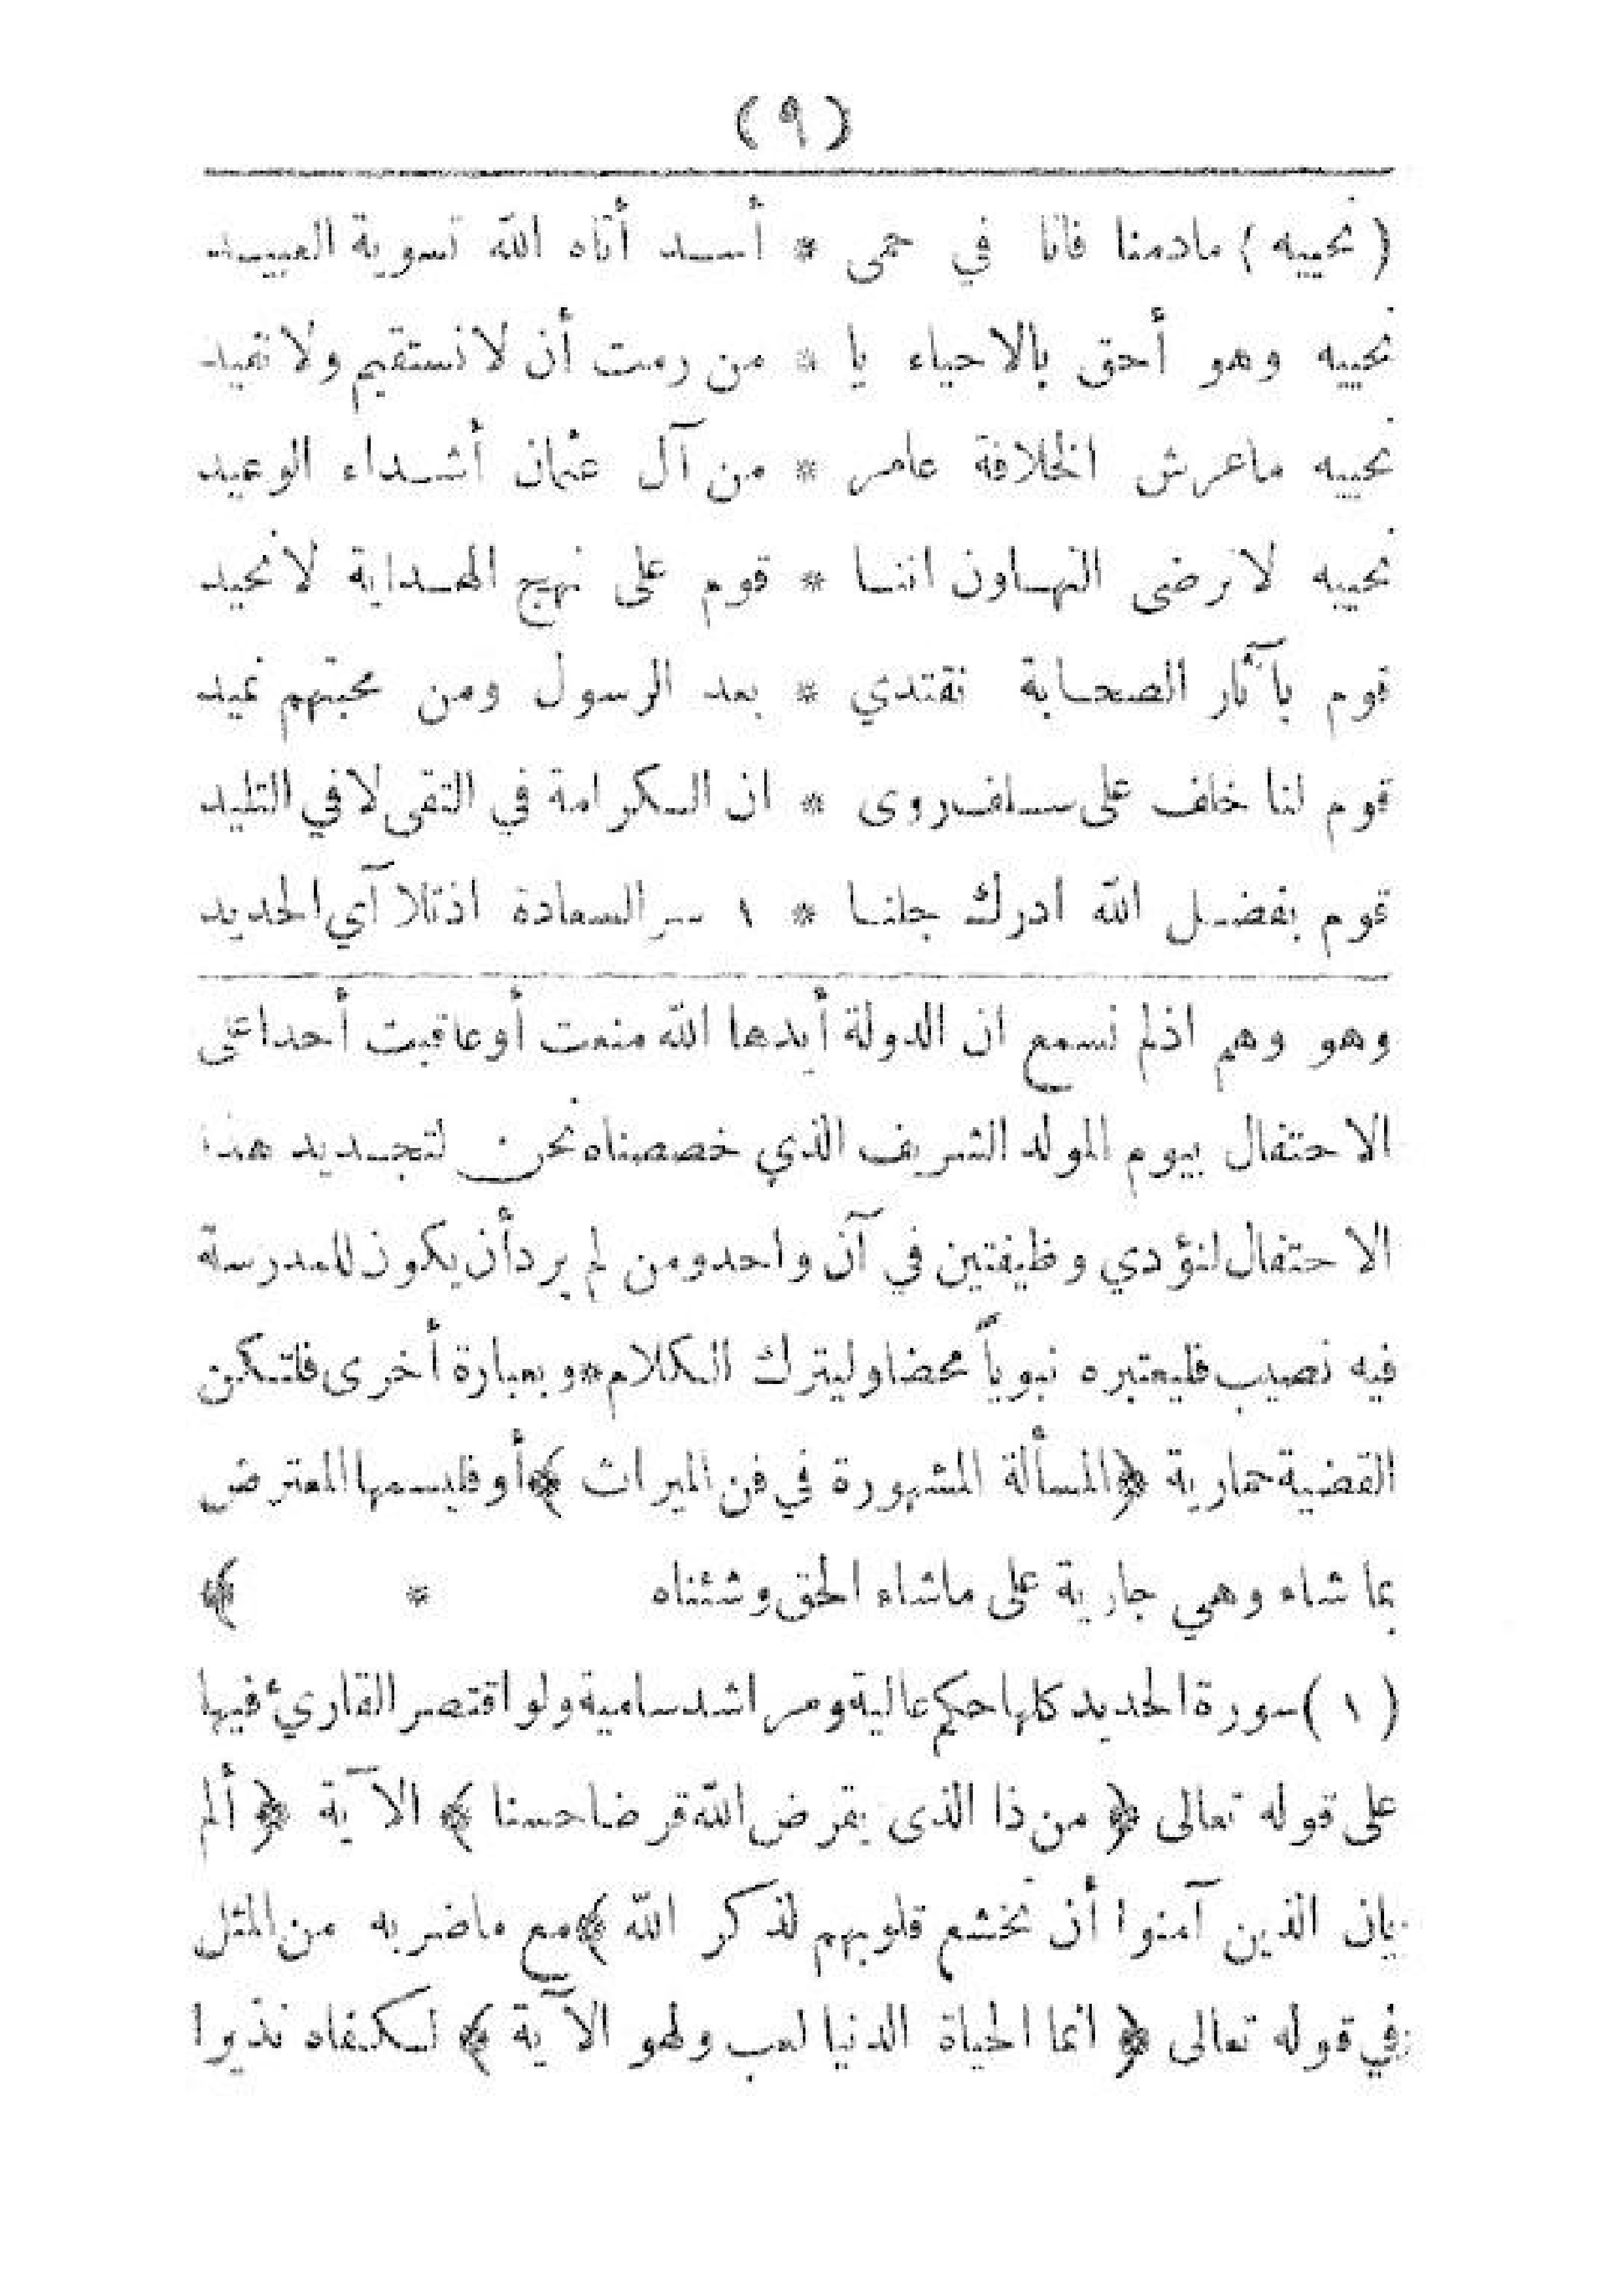 (٩)
(نحييه) مادمنا فانا في حمى * أسد أتاه الله تسوية العبيد
نحييه وهو أحق بالاحياء يا * من رمت أن لا نستقيم ولا نميد
نحييه ماعرش الخلافة عامر * من آل عثمان أشداء الوعيد
نحييه لا نرضى التهاون اننا * قوم على نهج الهداية لا نحيد
قوم بآثار الصحابة نقتدي * بعد الرسول ومن محبتهم نميد
قوم لنا خلف على سلف روى * ان الكرامة في التقى لا في التليد
قوم بفضل الله ادرك جلنا * ١ سر السعادة اذ تلا آي الحديد
وهو وهم اذ لم نسمع ان الدولة أيدها الله منعت أو عاقبت أحدا على
الاحتفال بيوم المولد الشريف الذي خصصناه نحن لتجديد هذا
الاحتفال لنؤدي وظيفتين في آن واحد ومن لم يرد أن يكون للمدرسة
فيه نصيب فليعتبره نبوياً محضا وليترك الكلام * وبعبارة أخرى فلتكن
القضية حمارية ﴿المسألة المشهورة في فن الميراث﴾ أو فليسمها المعترض
بما شاء وهي جارية على ماشاء الحق وشئناه * ﴾
(١) سورة الحديد كلها حكم عالية ومراشد سامية ولو اقتصر القاريء فيها
على قوله تعالى ﴿ من ذا الذى يقرض الله قرضا حسنا ﴾ الآية ﴿ ألم
يان الذين آمنوا أن تخشع قلوبهم لذكر الله ﴾ مع ماضربه من المثل
في قوله تعالى ﴿ انما الحياة الدنيا لعب ولهو الآية ﴾ لكفاه نذيرا